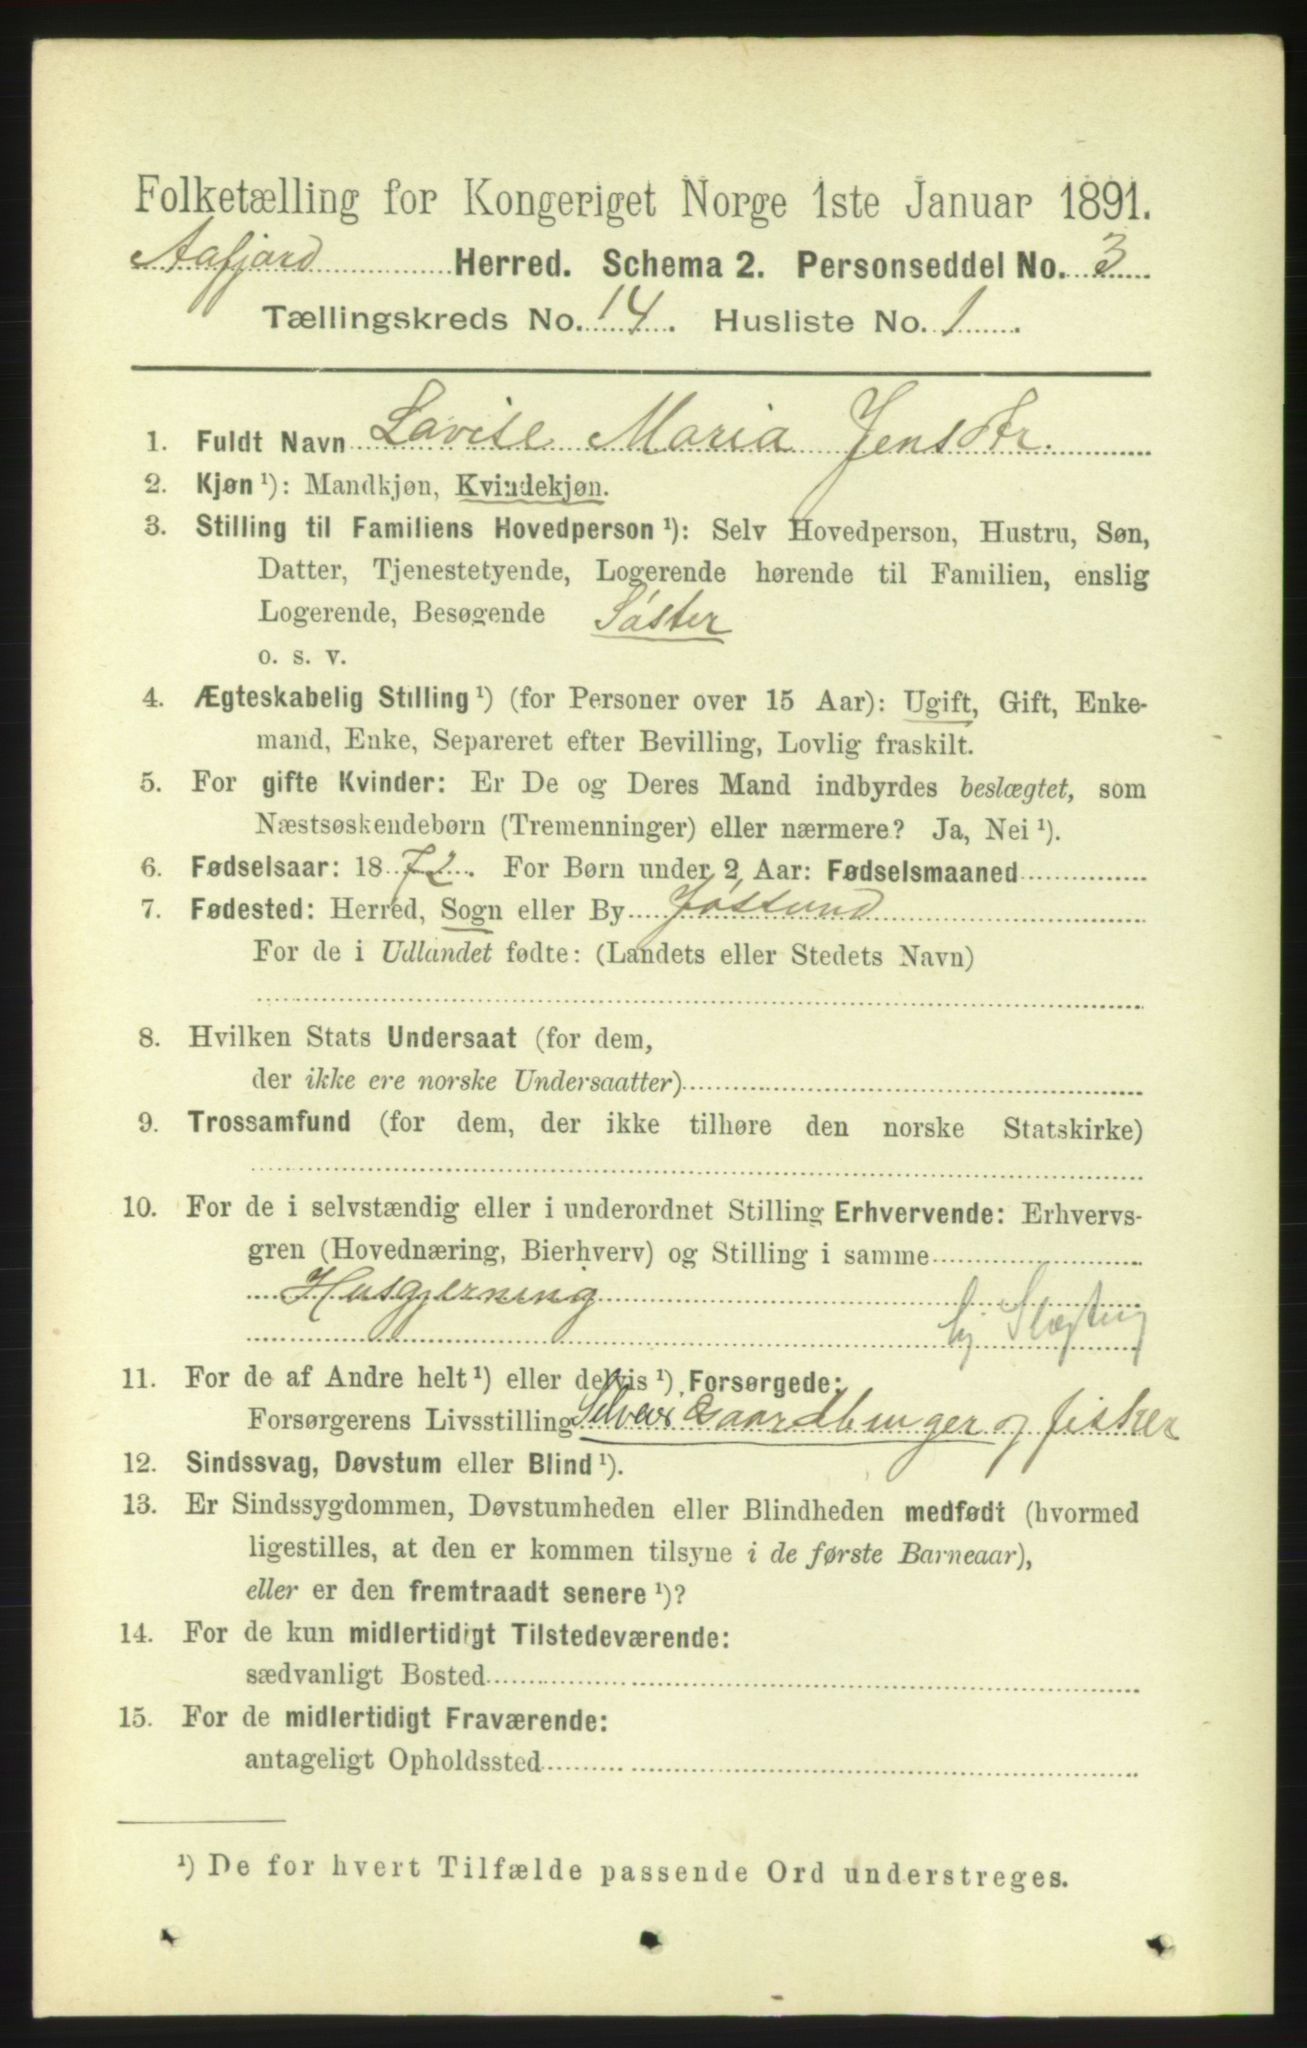 Folketælling for Kongeriget Norge 1ste Januar 1891.
Aafjord Herred. Schema 2. Personseddel No. 3
Tællingskreds No. 14. Husliste No. 1.
1. Fuldt Navn Lovise Maria Jensdtr.
2. Kjøn ¹): Mandkjøn, Kvindekjøn.
3. Stilling til Familiens Hovedperson ¹): Selv Hovedperson, Hustru, Søn,
Datter, Tjenestetyende, Logerende hørende til Familien, enslig
Logerende, Besøgende Søster
o. s. v.
4. Ægteskabelig Stilling ¹) (for Personer over 15 Aar): Ugift, Gift, Enke-
mand, Enke, Separeret efter Bevilling, Lovlig fraskilt.
5. For gifte Kvinder: Er De og Deres Mand indbyrdes beslægtet, som
Næstsøskendebørn (Tremenninger) eller nærmere? Ja, Nei ¹).
6. Fødselsaar: 1872. For Børn under 2 Aar: Fødselsmaaned
7. Fødested: Herred, Sogn eller By Jøssund
For de i Udlandet fødte: (Landets eller Stedets Navn)
8. Hvilken Stats Undersaat (for dem,
der ikke ere norske Undersaatter)
9. Trossamfund (for dem, der ikke tilhøre den norske Statskirke)
10. For de i selvstændig eller i underordnet Stilling Erhvervende: Erhvervs-
gren (Hovednæring, Bierhverv) og Stilling i samme
Husgjerning
Slægtng
11. For de af Andre helt ¹) eller delvis ¹) Forsørgede:
Forsørgerens Livsstilling Selveier Gaardbruger og fisker
12. Sindssvag, Døvstum eller Blind ¹).
13. Er Sindssygdommen, Døvstumheden eller Blindheden medfødt (hvormed
ligestilles, at den er kommen tilsyne i de første Barneaar),
eller er den fremtraadt senere ¹)?
14. For de kun midlertidigt Tilstedeværende:
sædvanligt Bosted
15. For de midlertidigt Fraværende:
antageligt Opholdssted
¹) De for hvert Tilfælde passende Ord understreges.